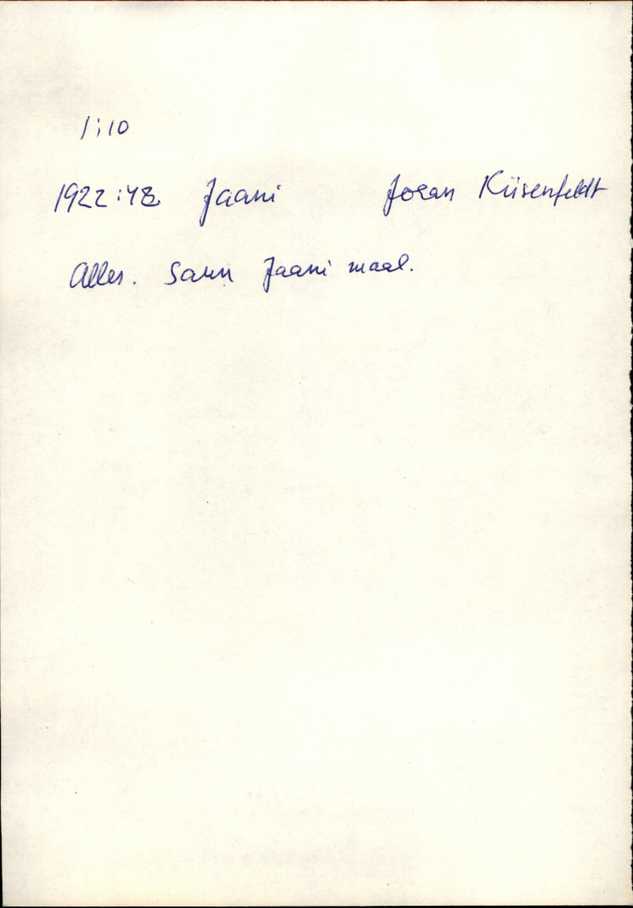 1:10
1922:48 Jaani Josan Küsenfeldt
Alles. Saun Jaani maal.